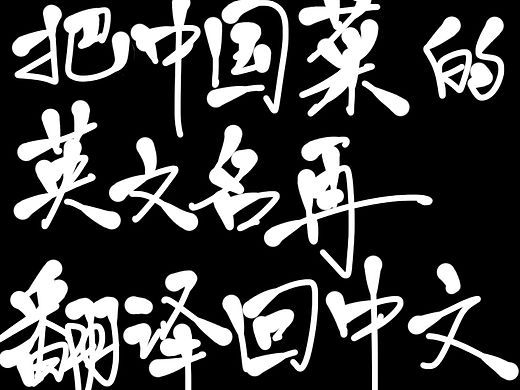 把中国菜的
英文名再
翻译回中文